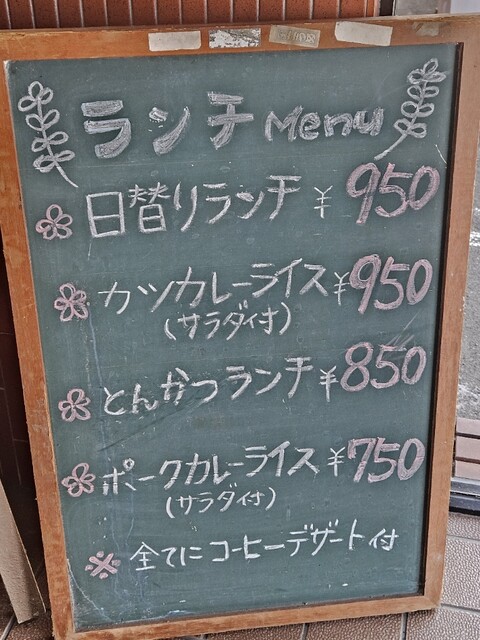 ランチ Menu
日替りランチ ¥950
カツカレーライス ¥950
(サラダ付)
とんかつランチ ¥850
ポークカレーライス ¥750
(サラダ付)
※ 全てにコーヒーデザート付